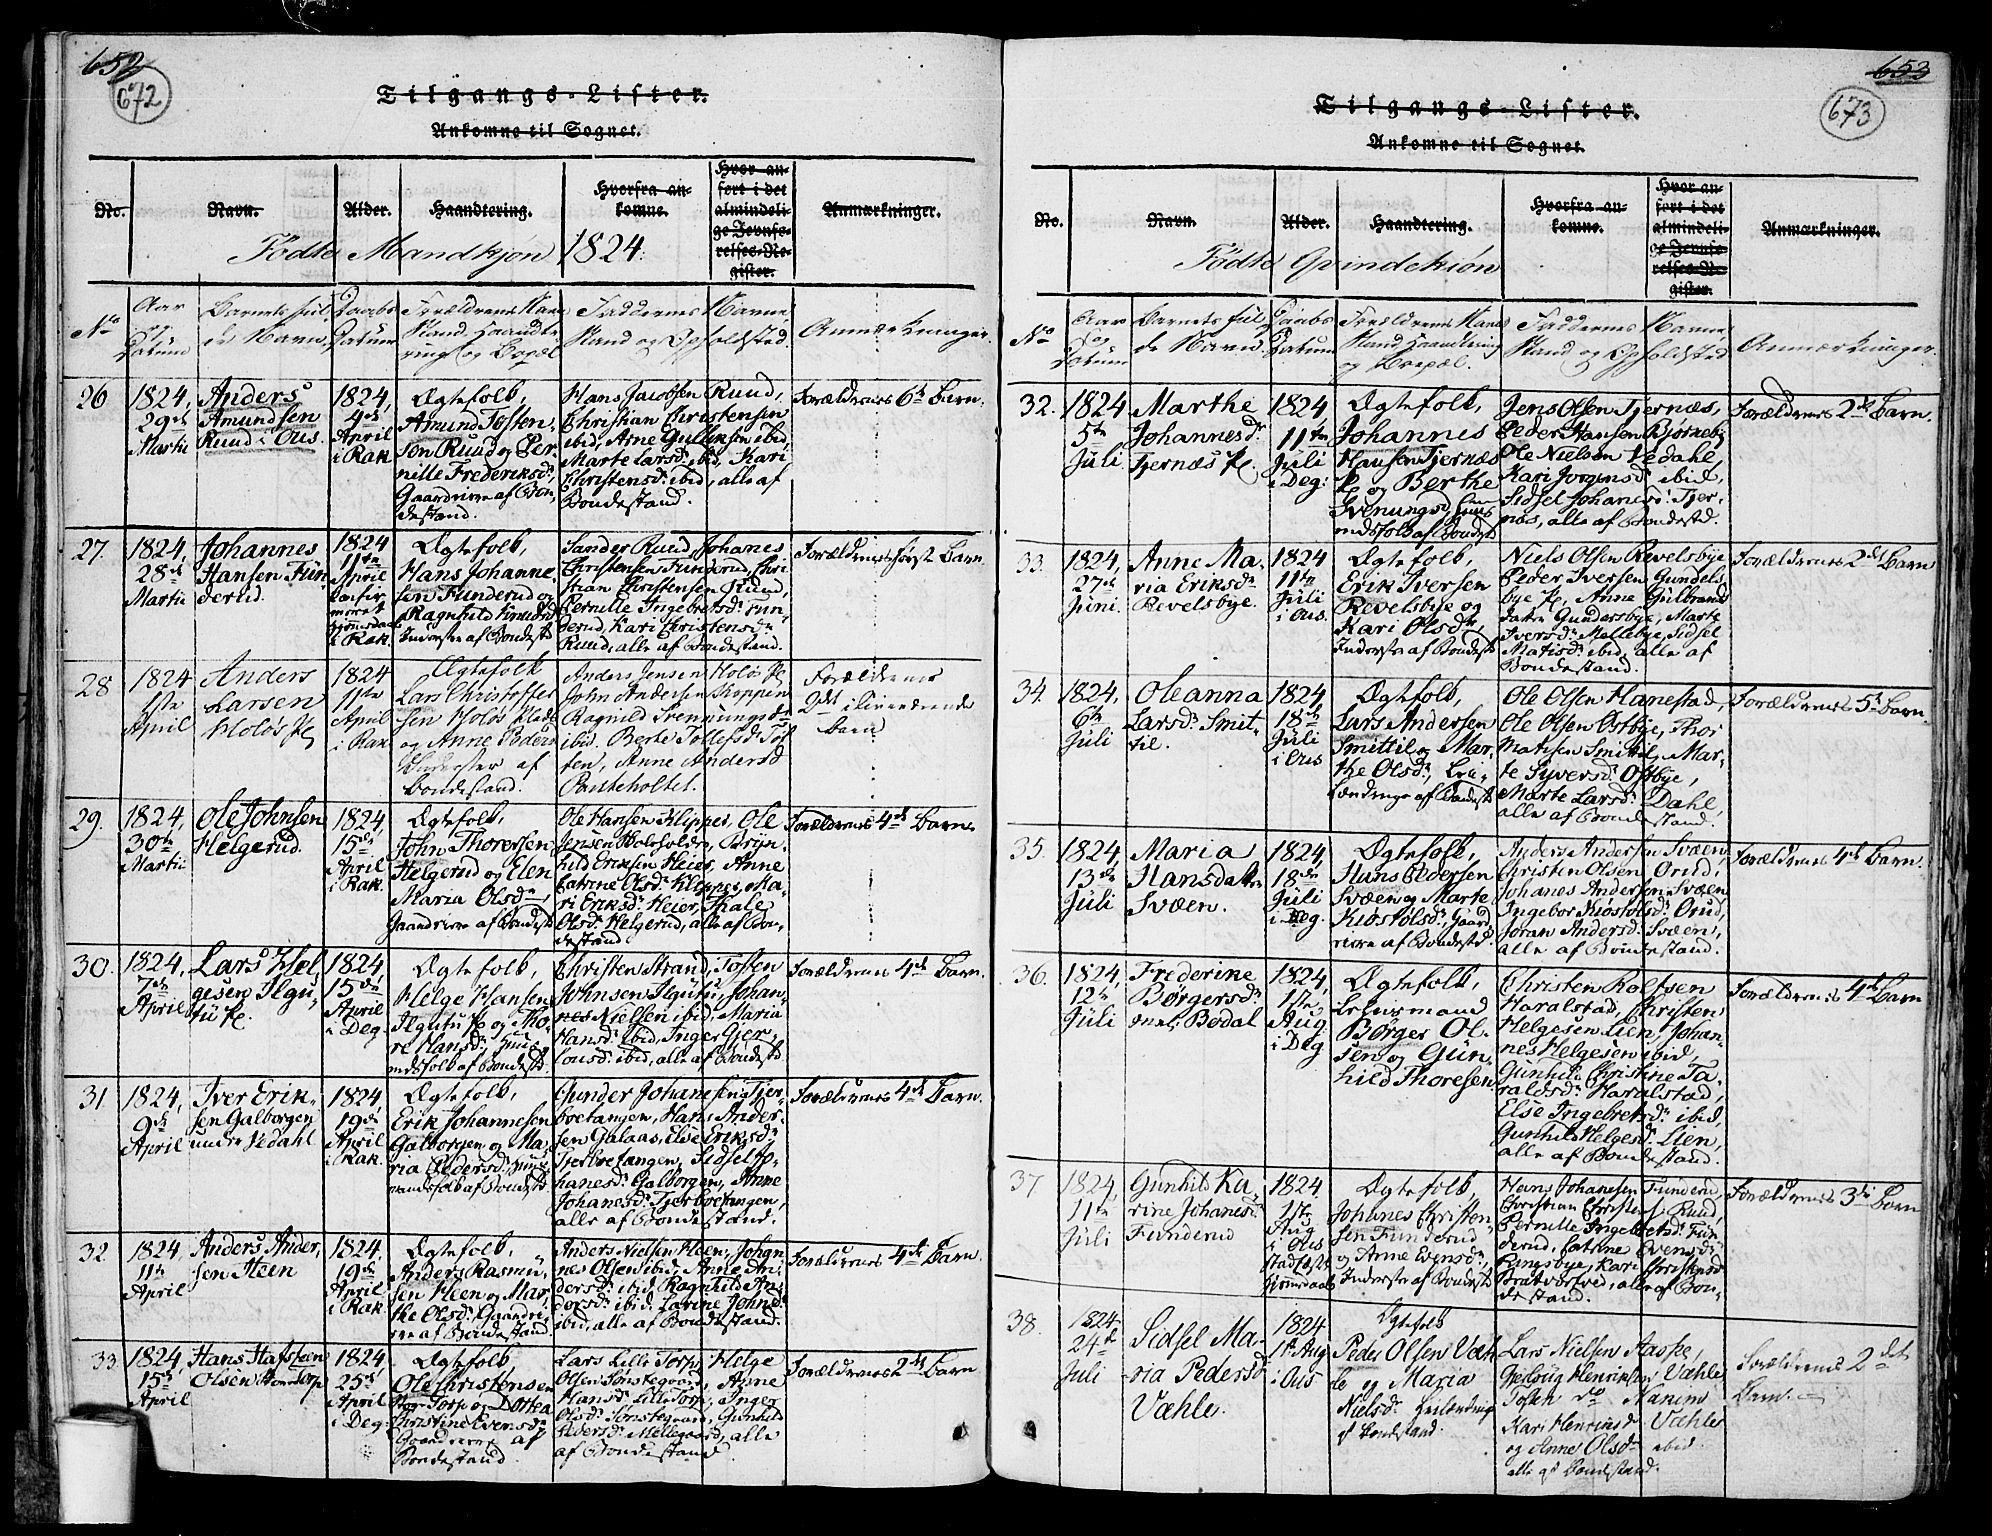 652
672
Tilgangs-Lister.
Ankomne til Sognet.
No.
Navn.
Alder.
Haandtering.
Hvorfra an-
komne.
Hvor an-
ført i det
almindeli-
ge Jevnfø-
relses-Re-
gister.
Anmærkninger.
Fødte Mandkjøn 1824.
No
Aar
og
Datum
Barnets ful-
de Navn.
Daabs
Datum
Forældrenes Navn
Stand, Haandte-
ring og Bopæl
Faddernes Navne
Stand og Opholdsted.
Anmærkninger
26
1824,
29de
Martii
Anders
Amundsen
Ruud i Ous
1824,
4de
April
i Rak.
Ægtefolk,
Amund Tosten-
son Ruud og Per-
nille Frederiksdr,
Gaardbrugere af Bon-
destand.
Hans Jacobsen Ruud,
Christian Christensen
ibid, Arne Gulliksen ibid,
Marte Larsdr ibid, Kari
Christensdr ibid, alle af
Bondestand.
Forældrenes 6te Barn.
27.
1824,
28de
Martii
Johannes
Hansen Fun-
derud.
1824
11te
April
i Rak.
Ægtefolk,
Hans Johanne-
sen Funderud og
Ragnhild Knudsd
Inderster af Bondestd
Sander Ruud, Johanes
Christensen Funderud, Chri-
stian Christensen Ruud,
Pernille Ingebretsdr Fun-
derud, Kari Christensdr
Ruud, alle af Bondestand.
Forældrenes første Barn
28
1824
1ste
April
Anders
Larsen
Holøs Pl
1824
11te
April
i Rak
Ægtefolk
Lars Christoffer-
sen Holøs Plads
og Anne Peders
Inderster af
Bondestand.
Anders Jensen Holøs Pl
John Andersen Kloppen
Ragnild Svenningsdr
ibid. Berte Tollefsdr Tof-
ten, Anne Andersd
Panteholtet.
Forældrenes
2det ilivværende
barn
29.
1824,
30te
Martii
Ole Johnsen
Helgerud.
1824,
15de
April
i Rak.
Ægtefolk,
John Thoresen
Helgerud og Elen
Maria Olsdr,
Gaardbrugere af Bondest
Ole Hansen Klippes, Ole
Jensen Holeholdr, Bryn-
hild Eriksen Heier, Anne
Catrine Olsdr Klippes, Ma-
ri Eriksdr Heier, Thale
Olsdr Helgerud, alle af Bon-
destand.
Forældrenes 4de Barn
30.
1824,
7de
April
Lars Hel-
gesen Ilgu-
tu Pl.
1824,
15de
April
i Deg
Ægtefolk,
Helge Hansen
Ilgutu Pl og Tho-
re Hansdr, Huus-
mdsfolk af Bondestd.
Christen Strand, Tosten
Johnsen Ilgutu, Johan-
nes Nielsen ibid, Maria
Hansdr ibid, Inger Gjer-
lousdr ibid, alle af Bondestd.
Forældrenes 4de Barn.
31
1824,
9de
April
Iver Erik-
sen Galborgen
under Vedahl
1824
19de
April
i Rak.
Ægtefolk,
Erik Johannesen
Galborgen og Ma-
ria Pedersdr, Huus-
mandsfolk af Bondestd.
Gunder Johanesen Tjer-
bretangen, Hans Ander-
sen Galaas, Else Eriksdr
Tjerbretangen, Sidsel Jo-
hanesdr Galborgen, Anne
Johanesdr Tjerbretangen,
alle af Bondestand.
Forældrenes 4de Barn.
32.
1824,
11te
April
Anders Ander-
sen Heen
1824,
19de
April
i Rak
Ægtefolk,
Anders Rasmu-
sen Heen og Mar-
the Olsdr Gaardbru-
gere af Bondestand.
Anders Nielsen Heen, Johan-
nes Olsen ibid, Anne An-
dersdr ibid, Ragnild An-
dersdr ibid, Larine Johnsdr
ibid, alle af Bondestand.
Forældrenes 4de Barn.
33
1824
15de
April
Hans Hafsteen
Olsen StorTorp
1824
25de
April
i Deg.
Ægtefolk,
Ole Christensen
Stor Torp og Dottea
Christine Evensdr
Gaardbrugere af
Bondestand.
Lars Lille Torp, Helge
Olsen Sønstegaard, Anne
Hansdr LilleTorp, Inger
Olsdr Sønstegaard, Gunhild
Pedersdr Mellegaard, alle
af Bondestand.
Forældrenes 2det Barn
653
673
Tilgangs-Lister.
Ankomne til Sognet.
No.
Navn.
Alder.
Haandtering.
Hvorfra an-
komne.
Hvor an-
ført i det
almindeli-
ge Jevnfø-
relses-Re-
gister.
Anmærkninger.
Fødte Qvindekiøn
No
Aar
og
Datum
Barnets ful-
de Navn
Daabs
Datum
Forældrenes Navn
Stand Haandtering
og Bopæl.
Faddernes Navne,
Stand og Opholdsted
Anmærkninger.
32.
1824
5te
Juli
Marthe
Johannesdr
Tjernæs Pl.
1824
11te
Juli
i Deg:
Ægtefolk,
Johannes
Hansen Tjernæs
Pl og Berthe
Svenungsd, Huus
mdsfolk af Bondest
Jens Olsen Tjernæs,
Peder Hansen Bjørneby
Ole Nielsen Vedahl,
Kari Jorgensdr ibid,
Sidsel Johanesdr Tjer-
næs, alle af Bondestd.
Forældrenes 2det Barn.
33.
1824,
27de
Juni
Anne Ma-
ria Eriksdr
Revelsbye.
1824
11te
Juli
i Ous
Ægtefolk,
Erik Iversen
Revelsbye og
Kari Olsdr,
Inderster af Bondest
Niels Olsen Revelsbye
Peder Iversen Gundels-
bye Pl, Anne Gulbrands
datr Gundersbye, Marte
Iversdr Mellebye, Sidsel
Matisdr ibid, alle af
Bondestand.
Forældrenes 2det Barn
34.
1824,
6te
Juli
Oleanna
Larsdr Smit-
til.
1824,
18de
Juli
i Ous
Ægtefolk,
Lars Andersen
Smittil og Mar-
the Olsdr, Lei-
lændinge af Bondest
Ole Olsen Hanestad,
Ole Olsen Østbye, Thor
Mathisen Smittil, Mar-
te Syversdr Østbye,
Marte Larsdr Dahl,
alle af Bondestand.
Forældrenes 5te Barn
35.
1824,
13de
Juli
Maria
Hansdatter
Svæen.
1824,
18de
Juli
i Deg.
Ægtefolk,
Hans Pedersen
Svæen og Marte
Kiøstølsdr, Gaard
brugere af Bondestd.
Anders Andersen Svæen,
Christen Olsen Orud,
Johanes Andersen Svæen
Ingebor Kiøstolsdr Orud,
Joran Andersdr Svæen,
alle af Bondestand.
Forældrenes 4de Barn.
36.
1824,
12te
Juli
Frederine
Børgersdr
Bødal
1824,
1ste
Aug
i Deg
Ægtefolk,
Børger Ol-
sen og Gun-
hild Thoresen
Christen Rolfsen
Haralstad, Christen
Helgesen Lien, Johan-
nes Helgesen ibid,
Gunhild Christine Ta-
raldsdr Haralstad,
Else Ingebretsdr ibid,
Gunhild Helgesdr Lien,
alle af Bondestand.
Forældrenes 4de Barn
37
1824,
11te
Juli
Gunhild Ka-
rine Johanesdr
Funderud
1824,
1ste
Aug
i Ous
Stadfæst
Hjemmedaab
Ægtefolk,
Johanes Christen-
sen Funderud
og Anne Evensdr
Inderster af Bondestd
Hans Johanesen Funderud,
Christian Christens Ruud,
Pernille Ingebretsdr Fun-
derud, Catrine Evensdr
Lingsbye, Kari Christensd
Bratvørfved, alle af Bon-
destand.
Forældrenes 3die Barn
38.
1824.
24de
Juli
Sidsel Ma-
ria Pedersd
Væhle.
1824
1te Aug
i Ous
Ægtefolk
Peder Olsen Væh
le og Maria
Nielsdr Leilænding
af Bondestand.
Lars Nielsen Aaspe,
Gjeloug Henriksdr Væhle
Tosten do Nanimo
Kari Henriksd Væhle
og Anne Olsdr ibid.
alle af Bondestand.
Forældrenes 2det
Barn.